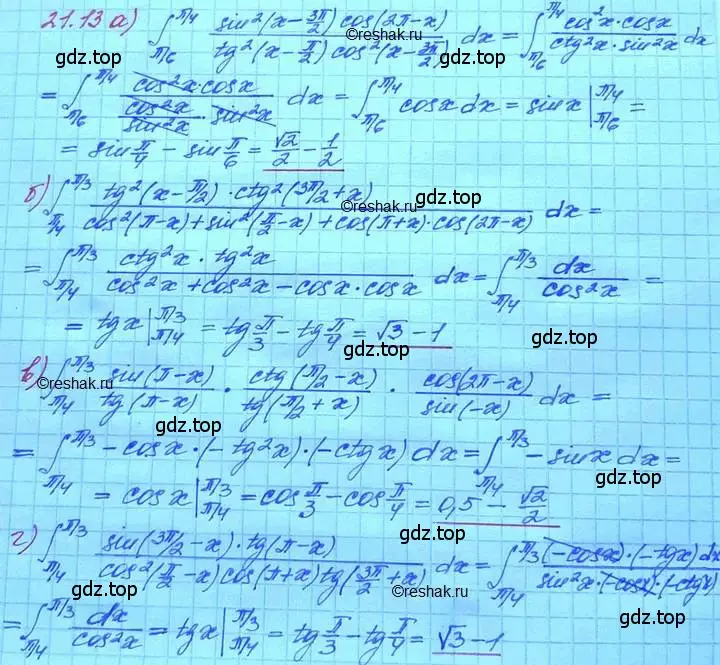 21.13 а) ∫_{π/6}^{π/4} sin²(x-3π/2) cos(2π-x) / tg²(x-π/2) cos²(x-3π/2) dx = ∫_{π/6}^{π/4} cos²x·cosx / ctg²x·sin²x dx
gdz.top gdz.top
©reshak.ru
= ∫_{π/6}^{π/4} cos²x·cosx / (cos²x/sin²x · sin²x) dx = ∫_{π/6}^{π/4} cosx dx = sinx |_{π/6}^{π/4} =
gdz.top
= sin π/4 - sin π/6 = √2/2 - 1/2
б) ∫_{π/4}^{π/3} tg²(x-π/2)·ctg²(3π/2+x) / cos²(π-x)+sin²(π/2-x)+cos(π+x)·cos(2π-x) dx =
©reshak.ru gdz.top
gdz.top
= ∫_{π/4}^{π/3} ctg²x·tg²x / cos²x+cos²x-cosx·cosx dx = ∫_{π/4}^{π/3} dx / cos²x =
= tgx |_{π/4}^{π/3} = tg π/3 - tg π/4 = √3-1
gdz.top
в) ∫_{π/4}^{π/3} sin(π-x) / tg(π-x) · ctg(π/2-x) / tg(π/2+x) · cos(2π-x) / sin(-x) dx =
©reshak.ru
gdz.top
= ∫_{π/4}^{π/3} -cosx·(-tg²x)·(-ctgx) dx = ∫_{π/4}^{π/3} -sinx dx =
gdz.top
= cosx |_{π/4}^{π/3} = cos π/3 - cos π/4 = 0,5 - √2/2
г) ∫_{π/4}^{π/3} sin(3π/2-x)·tg(π-x) / cos²(π/2-x)cos(π+x)tg(3π/2+x) dx = ∫_{π/4}^{π/3} (-cosx)·(-tgx)dx / sin²x·(-cosx)·(-ctgx)
gdz.top
©reshak.ru
= ∫_{π/4}^{π/3} dx / cos²x = tgx |_{π/4}^{π/3} = tg π/3 - tg π/4 = √3-1
gdz.top gdz.top